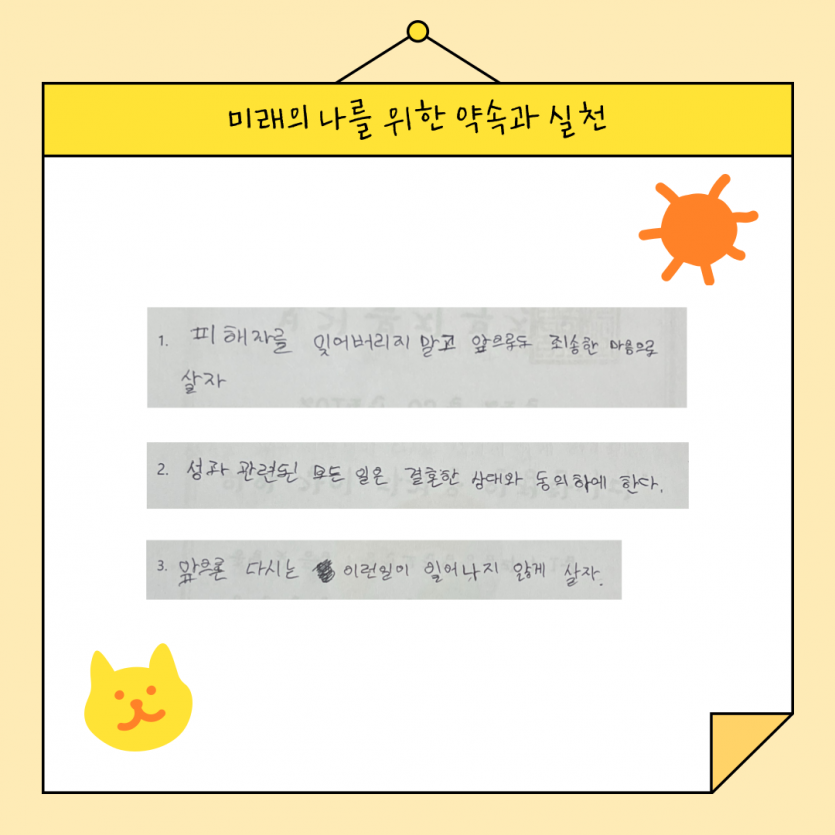 미래의 나를 위한 약속과 실천
1. 피해자를 잊어버리지 말고 앞으로도 죄송한 마음으로
살자
2. 성과 관련된 모든 일은 결혼한 상대와 동의하에 한다.
3. 앞으론 다시는 이런일이 일어나지 않게 살자.